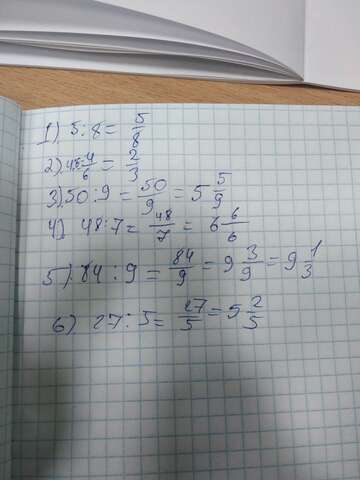 1) 5:8 = 5/8
2) 4/6 = 2/3
3) 50:9 = 50/9 = 5 5/9
4) 48:7 = 48/7 = 6 6/6
5) 84:9 = 84/9 = 9 3/9 = 9 1/3
6) 27:5 = 27/5 = 5 2/5